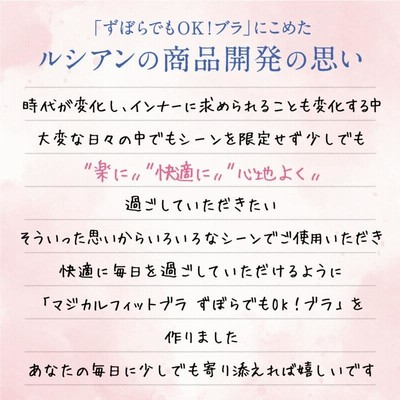 「ずぼらでもOK!ブラ」にこめた
ルシアンの商品開発の思い
時代が変化し、インナーに求められることも変化する中
大変な日々の中でもシーンを限定せず少しでも
"楽に〃"快適に〃"心地よく〃
過ごしていただきたい
そういった思いからいろいろなシーンでご使用いただき
快適に毎日を過ごしていただけるように
「マジカルフィットブラ ずぼらでもOK!ブラ」を
作りました
あなたの毎日に少しでも寄り添えれば嬉しいです